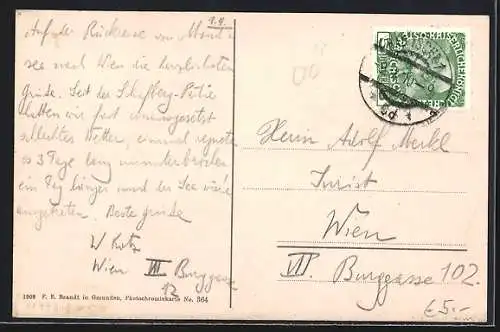 1.9.
Auf der Rückreise vom Mond-
see nach Wien die herzlichsten
Grüße. Seit der Schafberg-Partie
hatten wir fast ununterbrochen
schlechtes Wetter, einmal regnete
es 3 Tage lang ununterbrochen
ein Tag länger und der See wäre
ausgetreten. Beste Grüße
W
Wien VII Burggasse
12
Herrn Adolf Merkl
Jurist
Wien
VII. Burggasse 102.
€5.-
1909 F. E. Brandt in Gmunden, Photochromiekarte No. 364